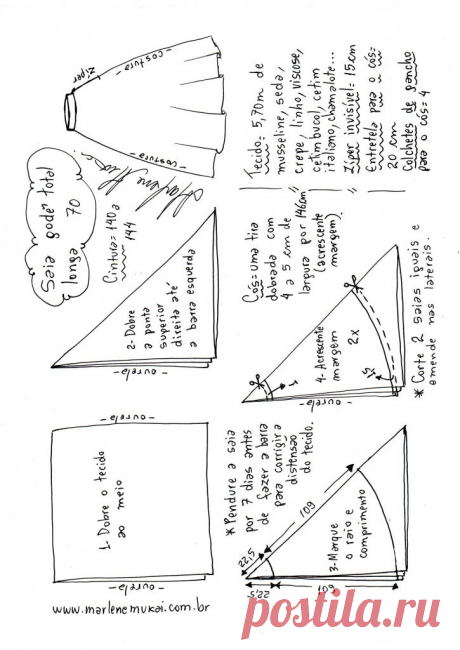 Saia godê total
longa 70
Cintura= 140 a
144
zíper
-costura-
-costura-
1- Dobre o tecido
ao meio
-ourela-
2- Dobre
a ponta
superior
direita até
a barra esquerda
-ourela-
*Pendure a saia
por 7 dias antes
de fazer a barra
para corrigir a
distensão
do tecido.
22,5
109
22,5
109
3- Marque
o raio e
comprimento
Cós= uma tira
dobrada com
4 a 5 cm de
largura por 146cm
(acrescente
margem).
4- Acrescente
margem
2x
1
ourela-
* Corte 2 saias iguais e
emende nas laterais.
Tecido= 5,70m de
musseline, seda,
crepe, linho, viscose,
cetim bucol, cetim
italiano, chamalote...
Zíper invisível= 15cm
Entretela para o cós=
20 cm
Colchetes de gancho
para o cós= 4
www.marlenemukai.com.br
postila.ru